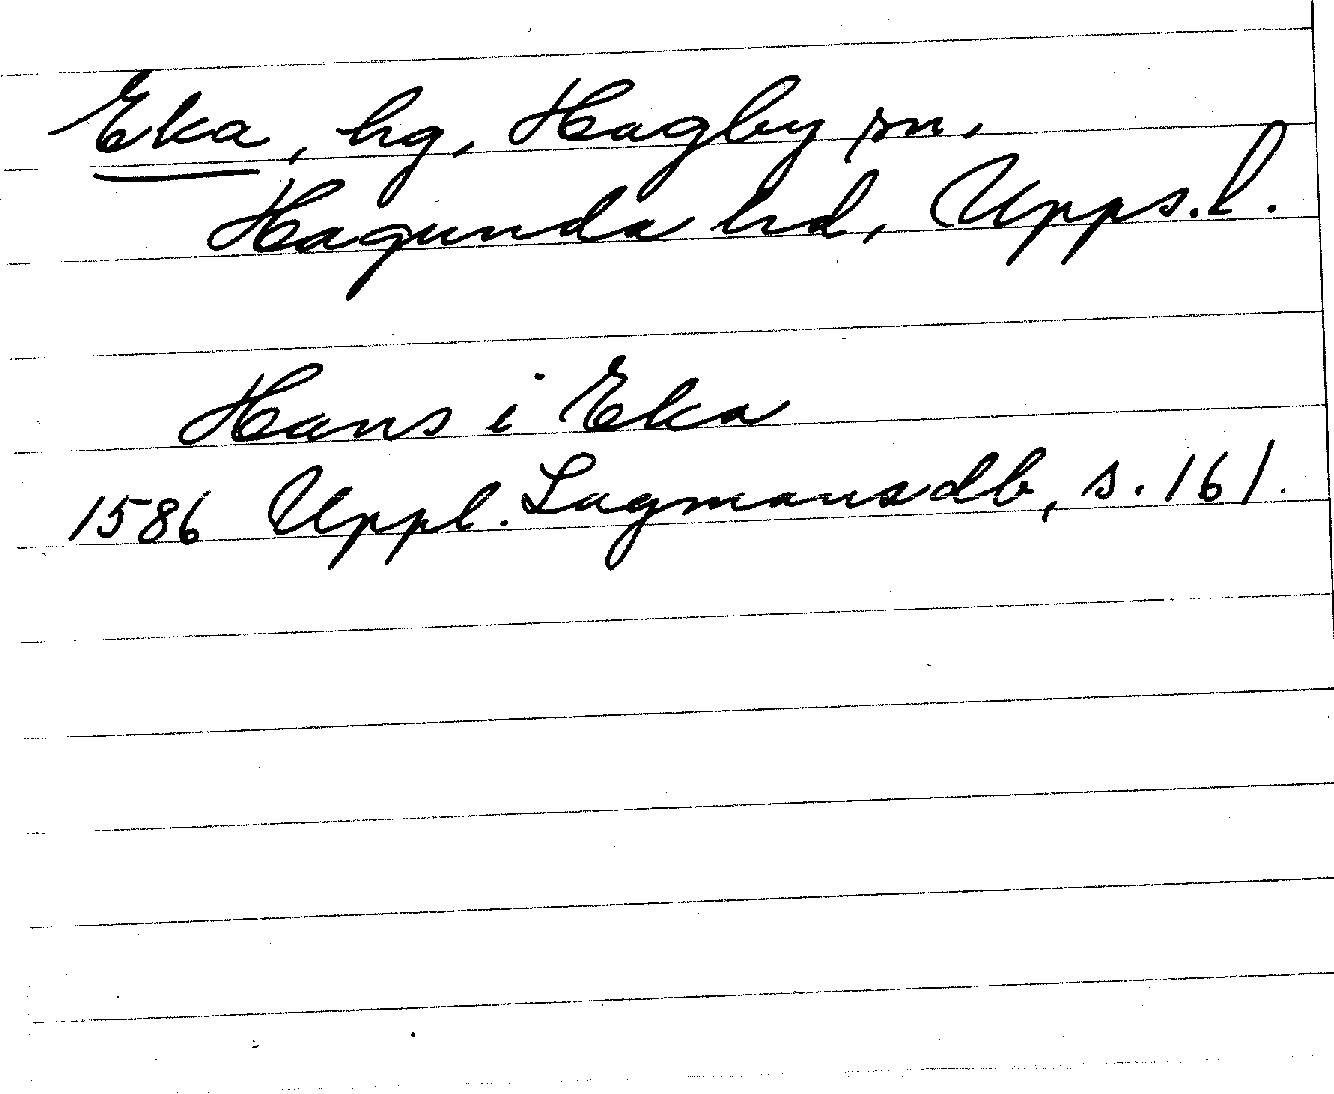 Eka, hg, Hagby sn,
Hagunda hd, Upps. l.
Hans i Eka
1586 Uppl. Lagmansdb, s. 161.